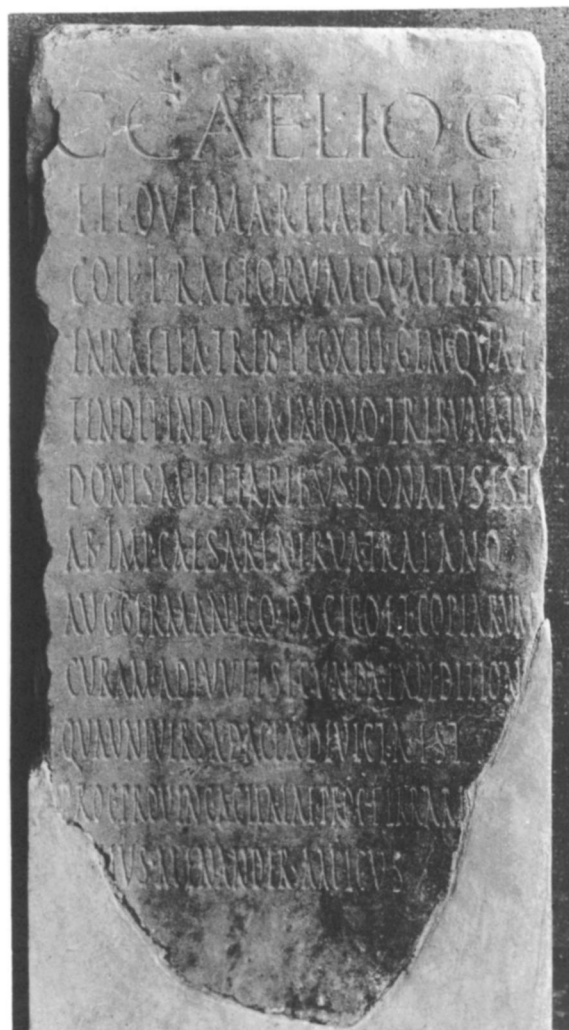 C CAELIO C
FIL·OVF·MARTIALI·PRAEF
COH·I·RAETORVM·QVAE TENDIT
IN RAETIA·TRIB·LEG XIII·GEM·QVAE
TENDIT IN DACIA·IN QVO·TRIBVNATV
DONIS MILITARIBVS DONATVS·EST
AB·IMP·CAESARE NERVA·TRAIANO
AVG GERMANICO·DACICO·ET·COPIARVM
CVRAM ADIVVIT SECVNDA·EXPEDITION
QVA VNIVERSA DACIA DEVICTA·EST
PROC PROVINC ACHAIAE PROC·FERRARI
IVS·ALEXANDER·AMICVS